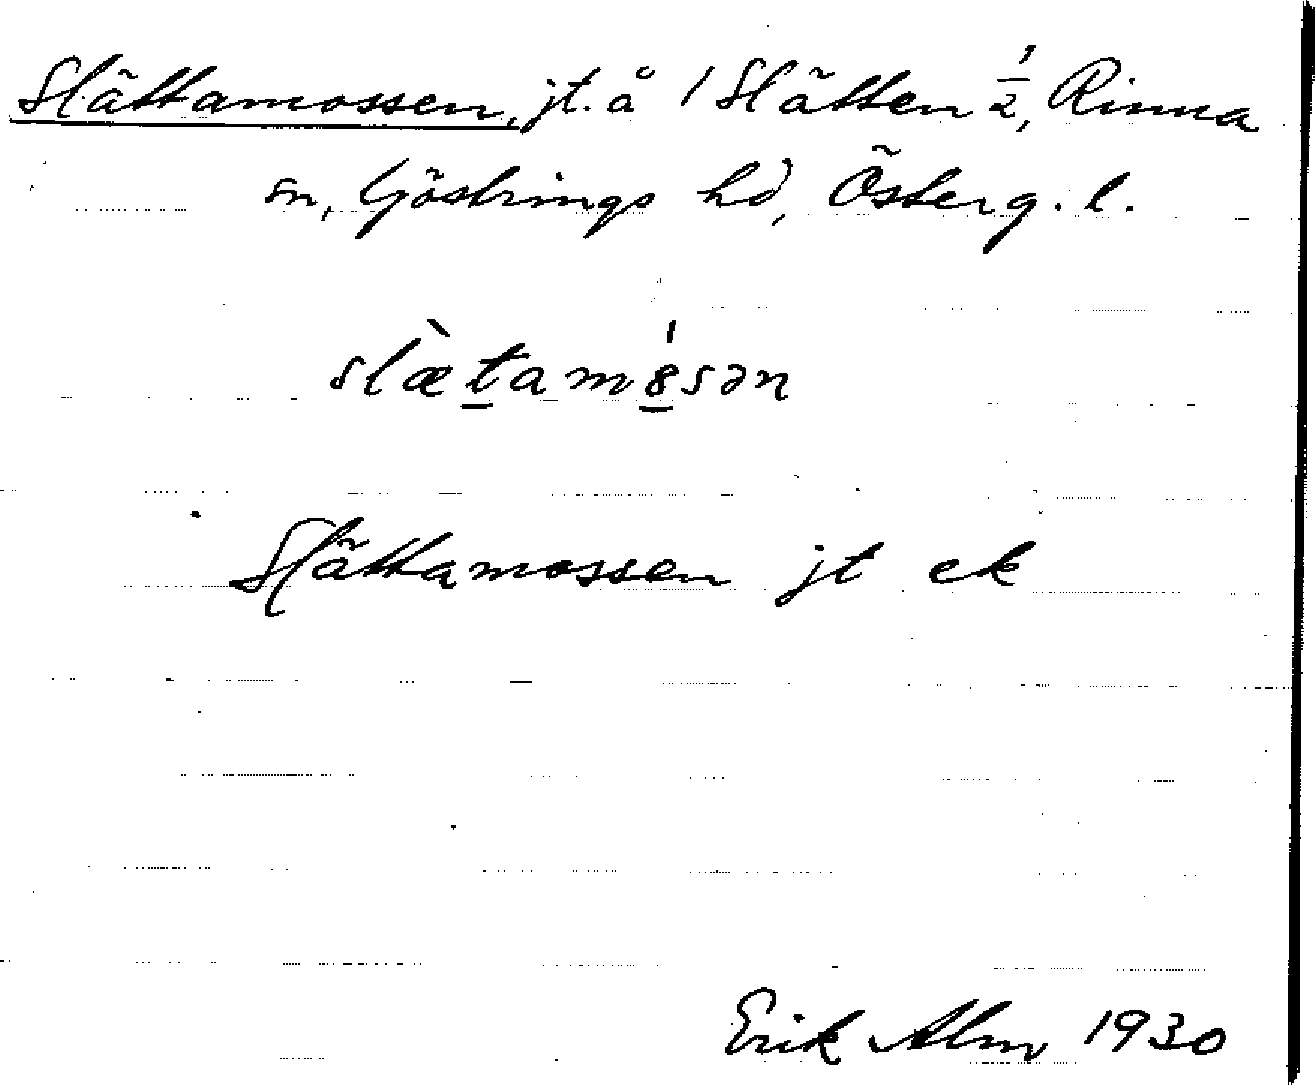 Slättamossen, jt. å 1 Slätten 1/2, Rinna
sn, Göstrings hd, Österg. l.
slæ̀t̲amó̲sən
Slättamossen jt ek
Erik Alm 1930